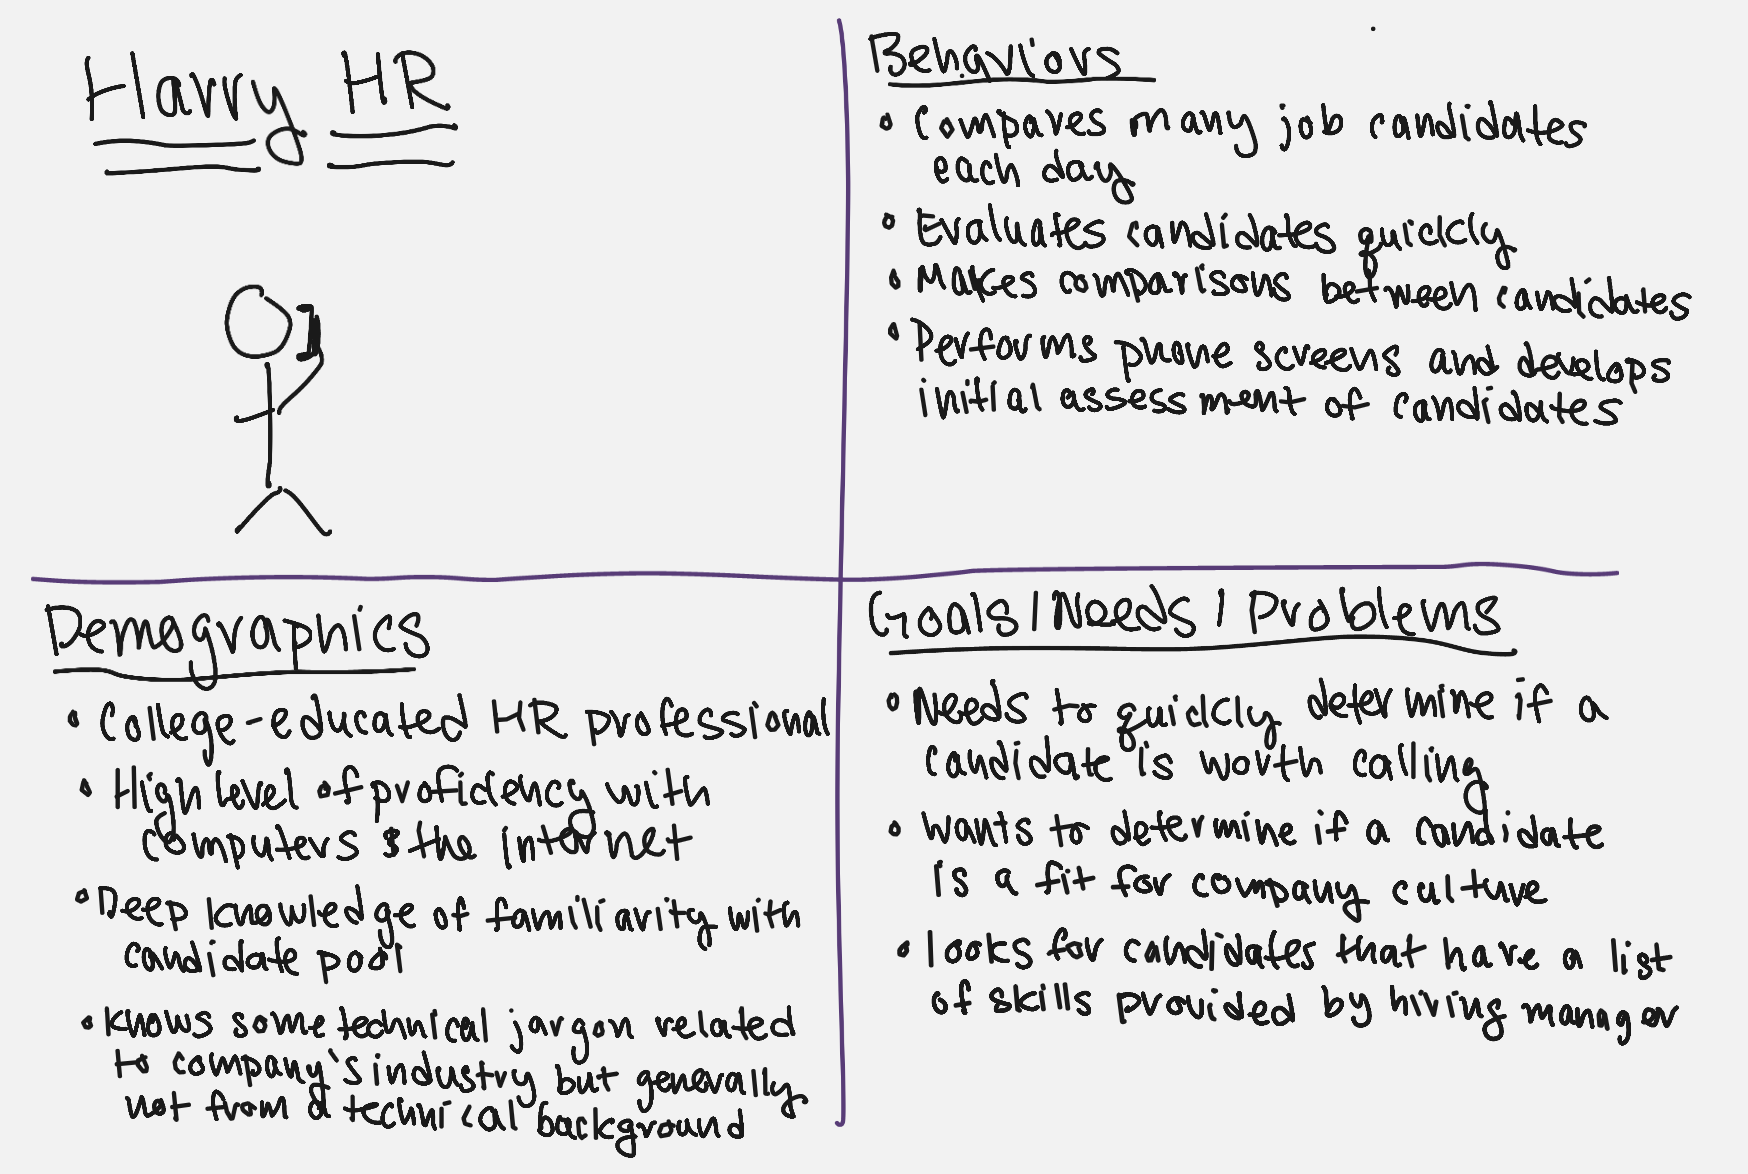 Harry HR
Behaviors
• Compares many job candidates
each day
• Evaluates candidates quickly
• Makes comparisons between candidates
• Performs phone screens and develops
initial assessment of candidates
Demographics
• College-educated HR professional
• High level of proficiency with
computers & the internet
• Deep knowledge of familiarity with
candidate pool
• Knows some technical jargon related
to company's industry but generally
not from a technical background
Goals/Needs/Problems
• Needs to quickly determine if a
candidate is worth calling
• Wants to determine if a candidate
is a fit for company culture
• Looks for candidates that have a list
of skills provided by hiring manager